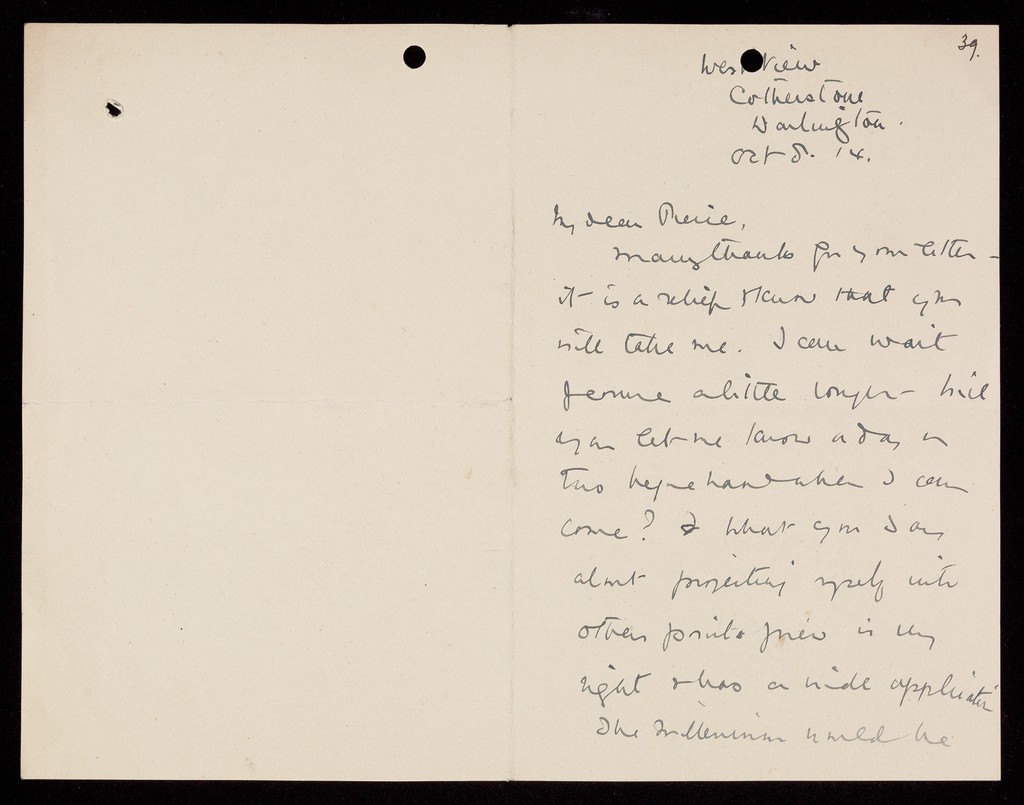 39.
West View
Cotherstone
Darlington.
Oct 8. 14.
My dear Pierie,
many thanks for your letter -
it is a relief to know that you
will take me. I can wait
for me a little longer - will
you let me know a day or
two beforehand when I can
come? What you say
about projecting myself into
others point of view is very
right & has a wide application
The millennium would be